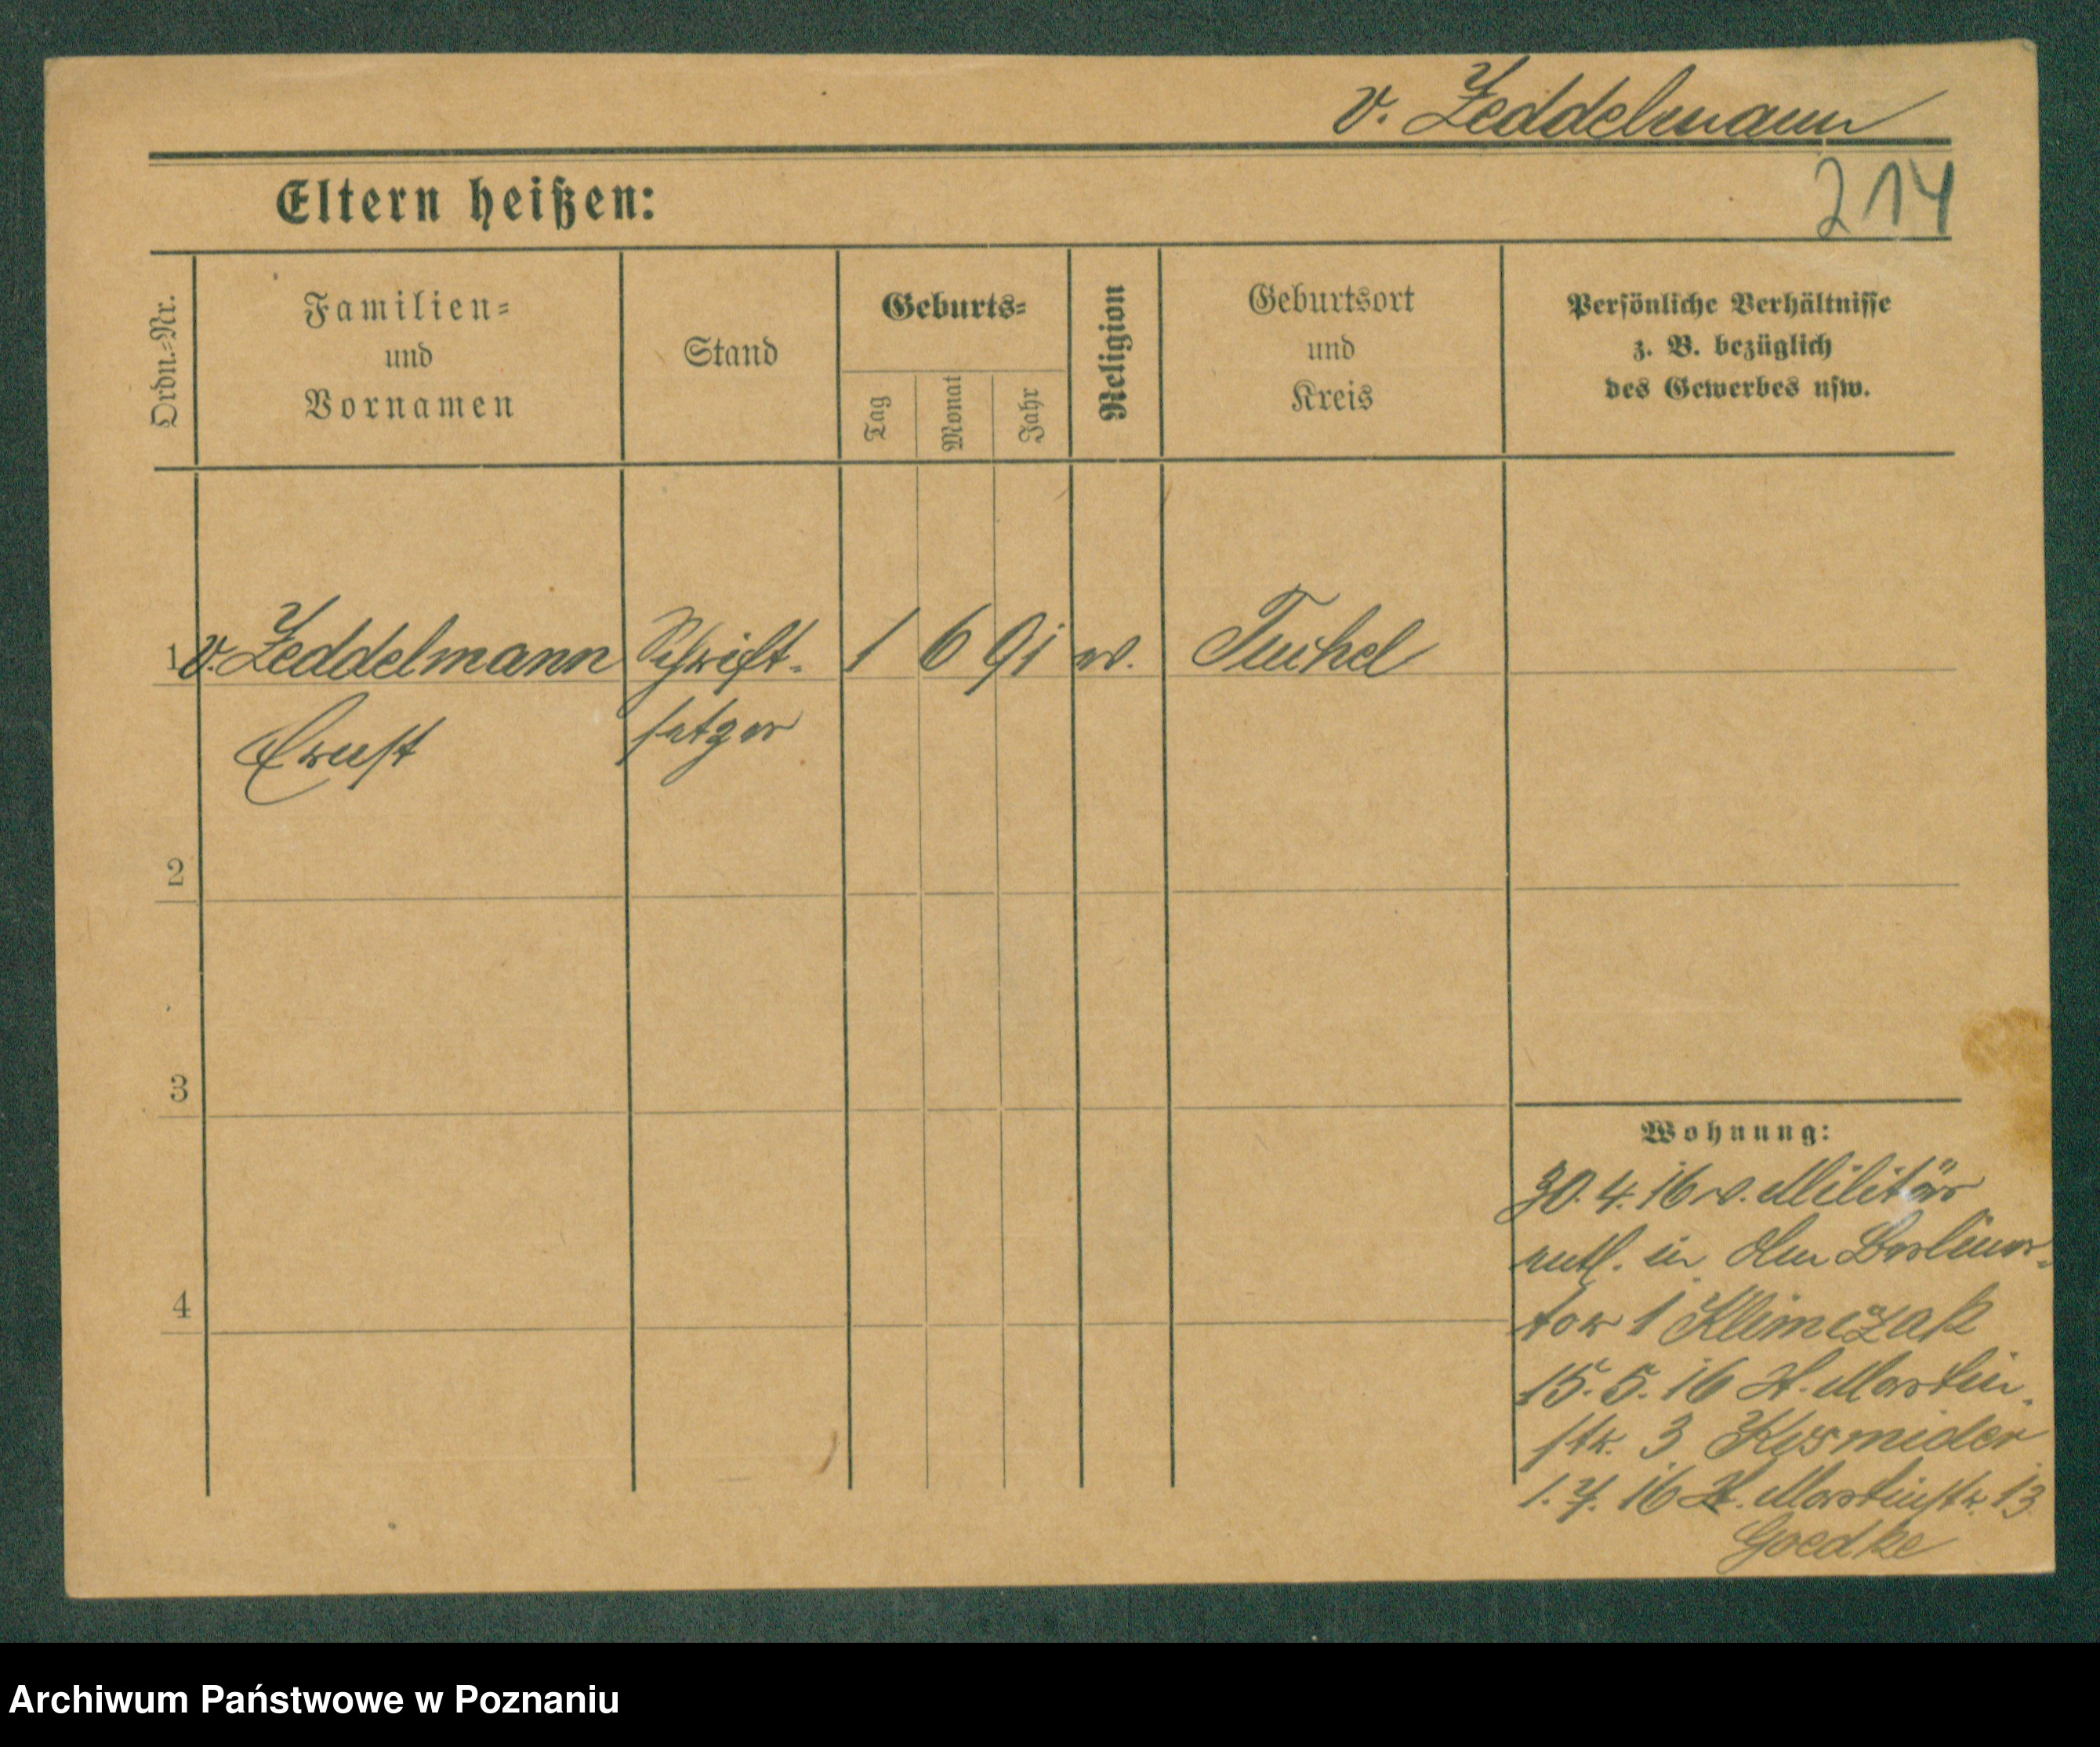 v. Zeddelmann
214
Eltern heißen:
Ordn.=Nr.
Familien=
und
Vornamen
Stand
Geburts=
Tag
Monat
Jahr
Religion
Geburtsort
und
Kreis
Persönliche Verhältnisse
z. B. bezüglich
des Gewerbes usw.
1 v. Zeddelmann Schrift- 1 6 91 ev. Tuchel
Ernst setzer
2
3
4
Wohnung:
30. 4. 16 v. Militär
entl. in Am Berliner-
tor 1 Klimczak
15. 5. 16 St. Martin
str. 3
1. 7. 16 St. Martinstr. 13
Goedke
Archiwum Państwowe w Poznaniu